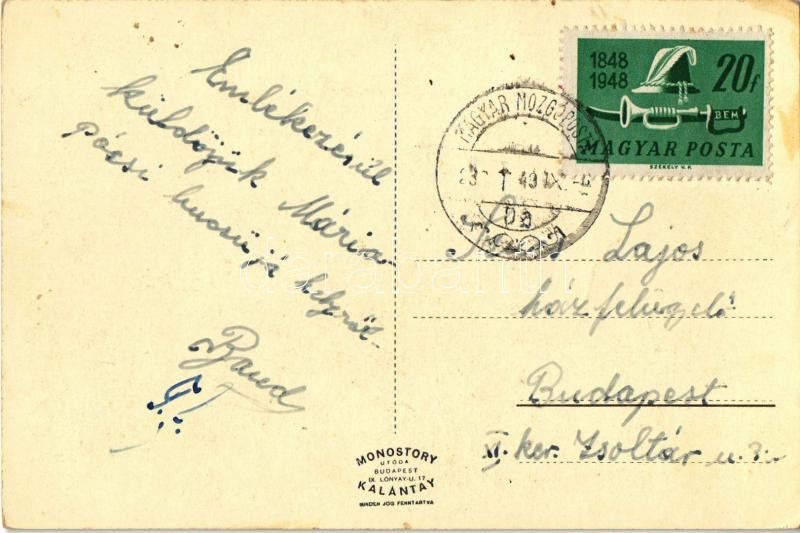 Emlékezésül
küldöjük Mária-
pócsi bucsújá
helyről-
1848
1948
20f
BEM
MAGYAR POSTA
SZÉKELY V. K.
MAGYAR MOZGÓPOSTA
Lajos
házfelügyelő
Budapest
XI. ker. Zsoltár u.
MONOSTORY
UTÓDA
BUDAPEST
IX. LÓNYAY-U. 17
KALÁNTAY
MINDEN JOG FENNTARTVA
darabanth